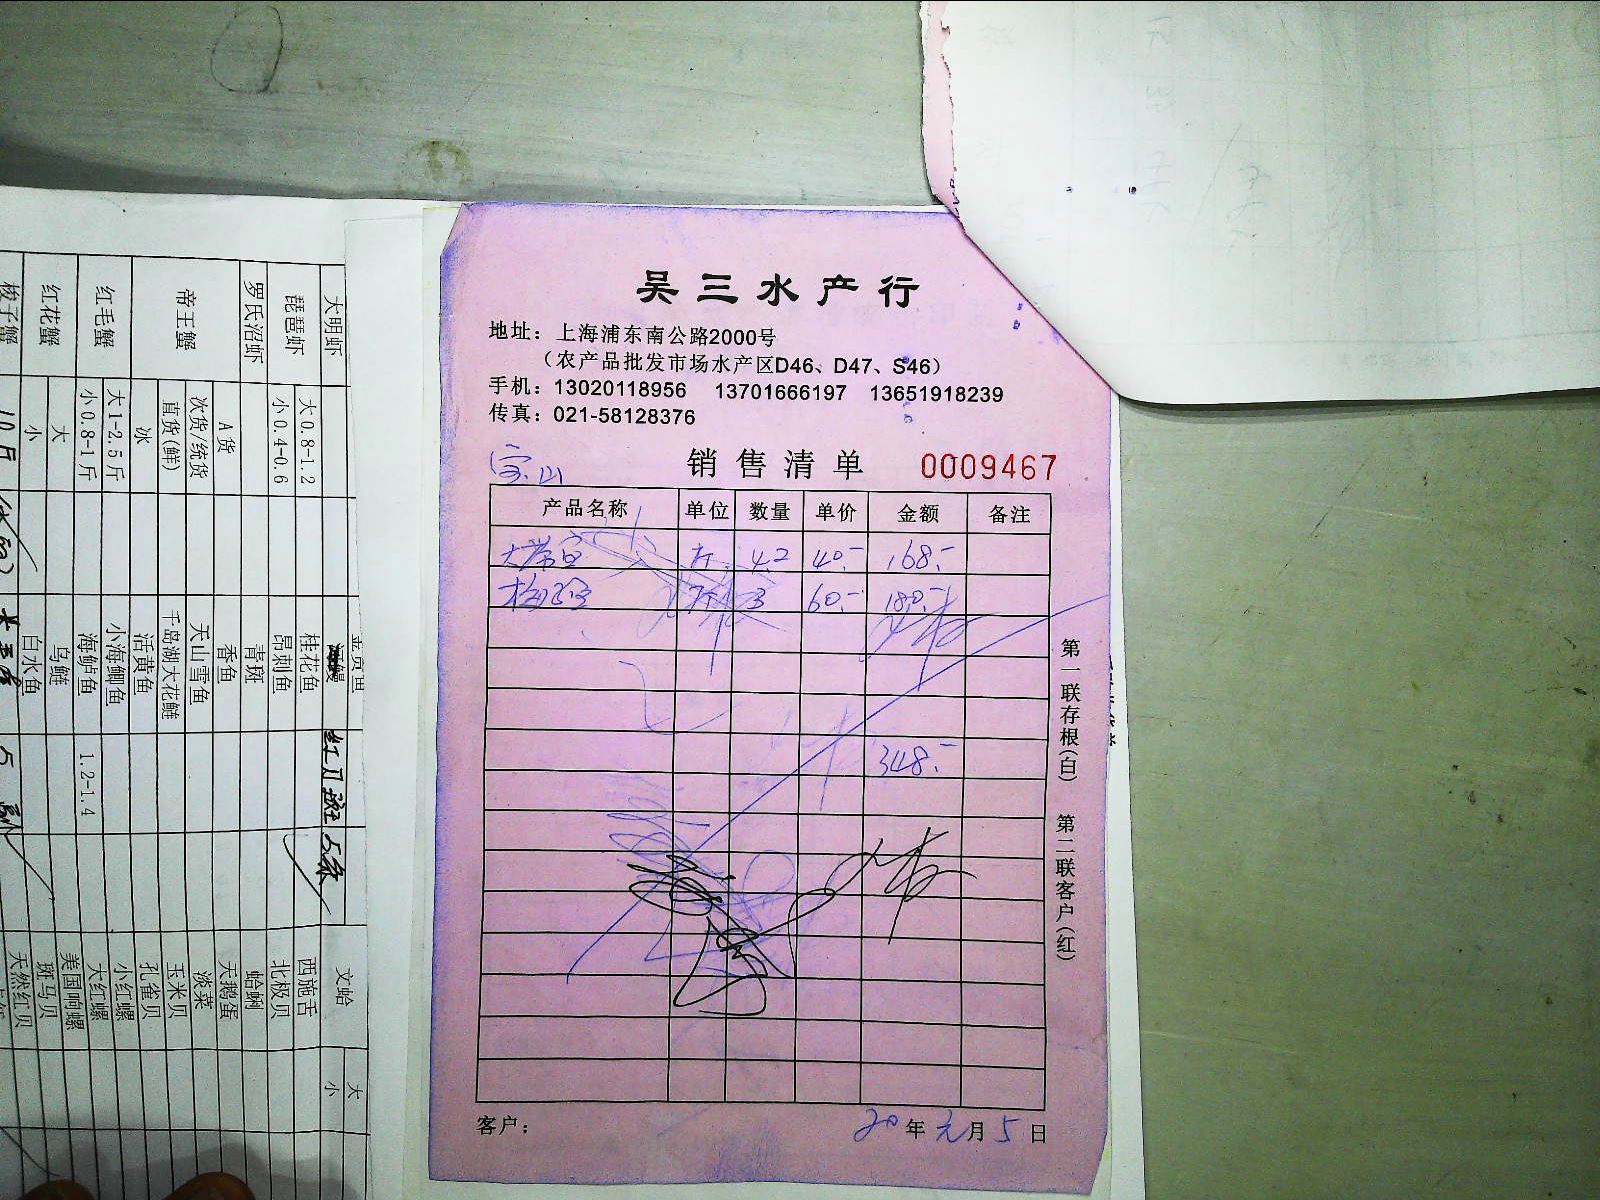 吴三水产行
地址：上海浦东南公路2000号
（农产品批发市场水产区D46、D47、S46）
手机：13020118956 13701666197 13651918239
传真：021-58128376
宝山
销售清单 0009467
产品名称 单位 数量 单价 金额 备注
斤 4.2 40.- 168.-
斤 3 60.- 180.-
348.-
第一联存根(白) 第二联客户(红)
客户：
20年元月5日
大明虾
琵琶虾 大0.8-1.2
小0.4-0.6
罗氏沼虾
帝王蟹 A货
次货/统货
直货(鲜)
冰
红毛蟹 大1-2.5斤
小0.8-1斤
红花蟹 大
小
梭子蟹 10斤
桂花鱼
昂刺鱼
青斑
香鱼
天山雪鱼
千岛湖大花鲢
活黄鱼
小海鲫鱼
海鲈鱼 1.2-1.4
乌鲢
白水鱼
文蛤 大
小
西施舌
北极贝
蛤蜊
天鹅蛋
淡菜
玉米贝
孔雀贝
小红螺
大红螺
美国响螺
斑马贝
天然红贝